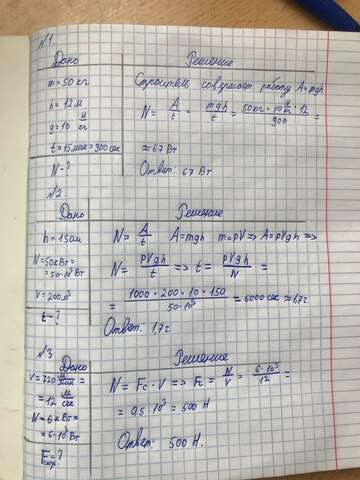 №1.
Дано
Решение
m = 50 кг
h = 12 м
g = 10 м/кг
t = 15 мин = 900 сек
N - ?
Строитель совершает работу A = mgh
N = A/t = mgh/t = 50кг · 10 м/кг · 12 / 900 =
≈ 67 Вт
Ответ: 67 Вт
№2
Дано
Решение
h = 150м
N = 50кВт =
= 50·10³ Вт
V = 200м³
t - ?
N = A/t A = mgh m = ρV => A = ρVgh =>
N = ρVgh/t => t = ρVgh/N =
= 1000 · 200 · 10 · 150 / 50·10³ = 6000 сек ≈ 1,7 г
Ответ: 1,7 г
№3
Дано
Решение
V = 720 м/мин =
= 12 м/сек
N = 6 кВт =
= 6·10³ Вт
Fсопр. - ?
N = Fc · V => Fc = N/V = 6·10³/12 =
= 0,5·10³ = 500 Н
Ответ: 500 Н.